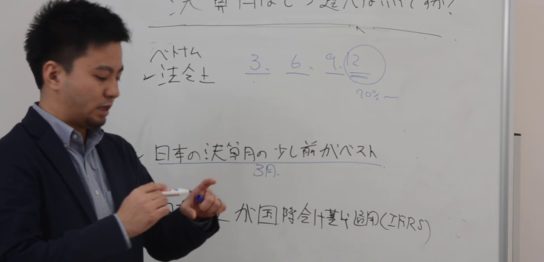 決算月はいつ
ベトナム
法令上 3. 6. 9. 12
70%〜
日本の決算月の少し前がベスト
3月
が国際会計基準適用(IFRS)